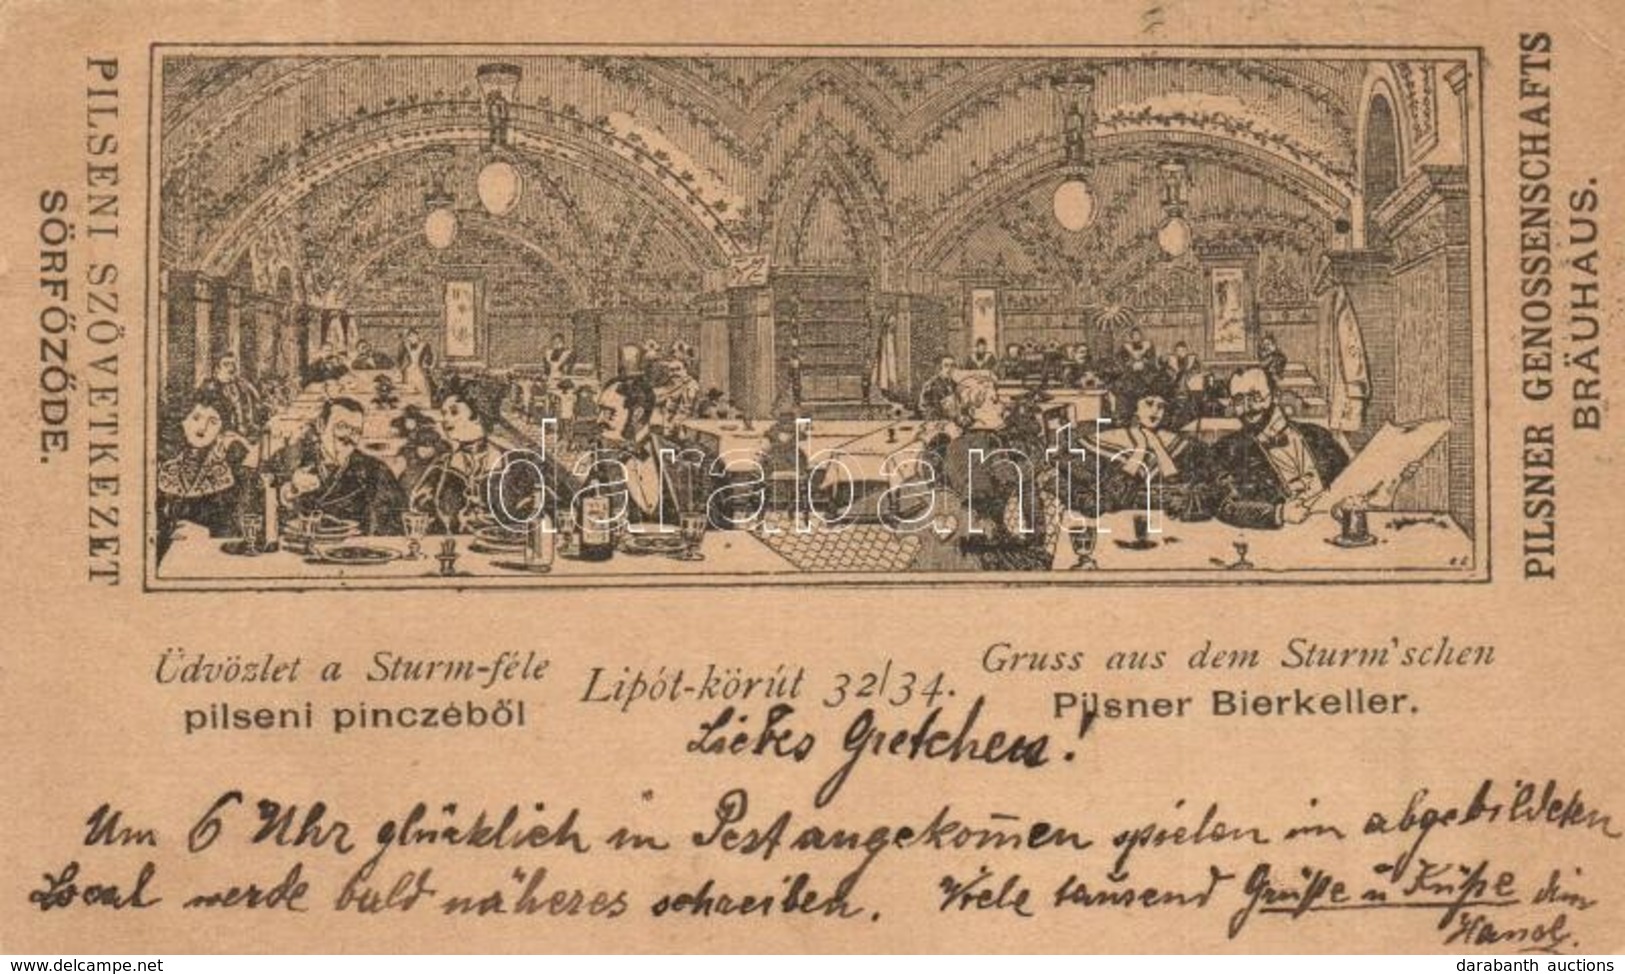 PILSENI SZÖVETKEZET
SÖRFŐZŐDE.
PILSNER GENOSSENSCHAFTS
BRÄUHAUS.
darabanth
Üdvözlet a Sturm-féle
pilseni pinczéből
Lipót-körút 32/34.
Gruss aus dem Sturm'schen
Pilsner Bierkeller.
Liebes Gretchen!
Um 6 Uhr glücklich in Pest angekom̄en spielen im abgebildeten
Local werde bald näheres schreiben. Viele tausend Grüße u Küße dein
darabanth auctions
www.darabanth.com